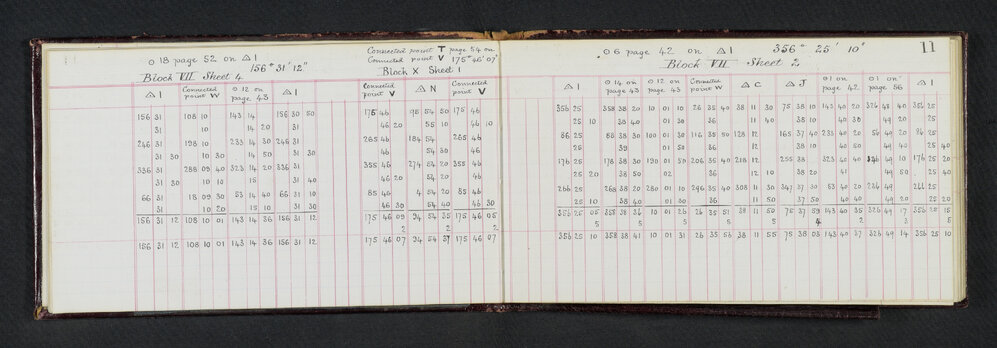 O 18 page 52 on △ 1 156° 31' 12"
Block VII Sheet 4
△ 1 Connected point W O 12 on page 43 △ 1
156 31 108 10 143 14 156 30 50
31 10 14 20 31
246 31 198 10 233 14 30 246 31
31 30 10 30 14 50 31 30
336 31 288 09 40 323 14 20 336 31
31 30 10 10 15 31 40
66 31 18 09 30 53 14 40 66 31 10
31 10 20 15 10 31 30
156 31 12 108 10 01 143 14 36 156 31 12
156 31 12 108 10 01 143 14 36 156 31 12
Connected point T page 54 on
Connected point V 175° 46' 07"
Block X Sheet 1
Connected point V △ N Connected point V
175 46 94 54 50 175 46
46 20 55 10 46 10
265 46 184 54 265 46
46 54 30 46
355 46 274 54 20 355 46
46 20 54 20 46
85 46 4 54 20 85 46
46 30 54 40 46 30
175 46 09 94 54 35 175 46 05
2 2 2
175 46 07 94 54 37 175 46 07
11
O 6 page 42 on △ 1 356° 25' 10"
Block VII Sheet 2
△ 1 O 14 on page 43 O 12 on page 43 Connected point W △ C △ J O 1 on page 42 O 1 on page 56 △ 1
356 25 358 38 20 10 01 10 26 35 40 38 11 30 75 38 10 143 40 20 326 48 40 356 25
25 10 38 40 01 30 36 11 40 38 10 40 30 49 20 25
86 25 88 38 30 100 01 30 116 35 50 128 12 165 37 40 233 40 20 56 49 20 86 25
25 39 01 50 36 12 38 10 40 50 49 40 25 40
176 25 178 38 30 190 01 50 206 35 40 218 12 255 38 323 40 40 49 10 176 25 20
25 20 38 50 02 36 12 10 38 20 41 49 50 25
266 25 268 38 20 280 01 10 296 35 40 308 11 30 347 37 30 53 40 20 236 49 266 25
25 10 38 40 01 30 36 11 50 37 50 40 40 49 20 25 20
356 25 05 358 38 36 10 01 26 26 35 51 38 11 50 75 37 59 143 40 35 326 49 17 356 25 15
5 5 5 5 5 4 2 3 5
356 25 10 358 38 41 10 01 31 26 35 56 38 11 55 75 38 03 143 40 37 326 49 14 356 25 10